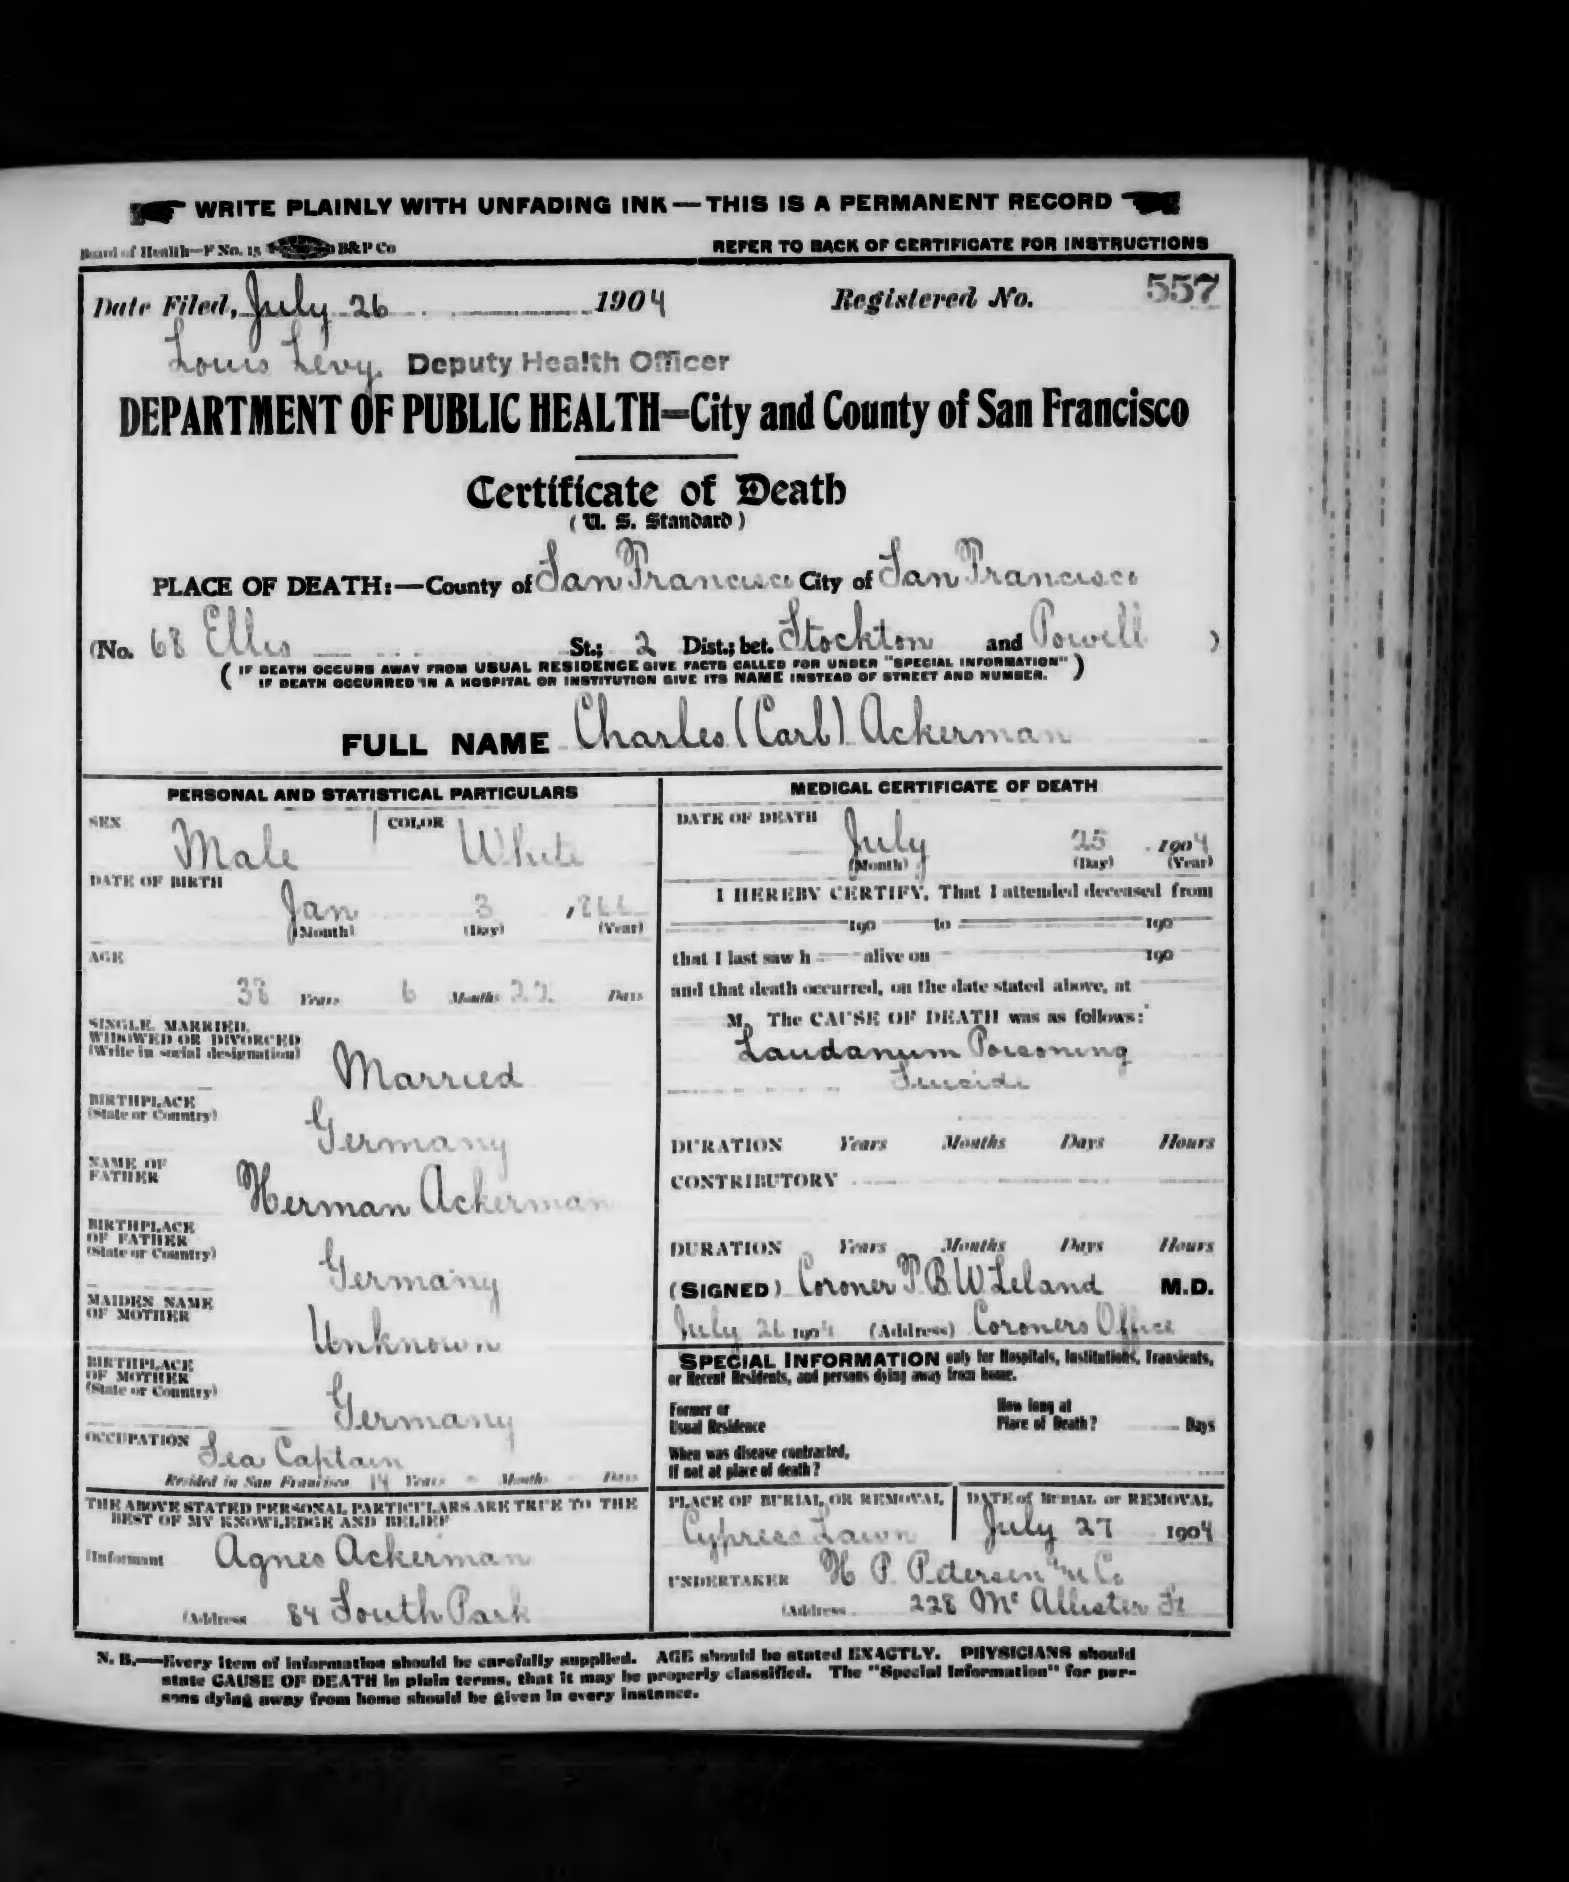 WRITE PLAINLY WITH UNFADING INK — THIS IS A PERMANENT RECORD
Board of Health—F No. 15 B&P Co REFER TO BACK OF CERTIFICATE FOR INSTRUCTIONS
Date Filed, July 26 1904 Registered No. 557
Louis Levy, Deputy Health Officer
DEPARTMENT OF PUBLIC HEALTH—City and County of San Francisco
Certificate of Death
(U. S. Standard)
PLACE OF DEATH:—County of San Francisco City of San Francisco
(No. 68 Ellis St.; 2 Dist.; bet. Stockton and Powell )
( IF DEATH OCCURS AWAY FROM USUAL RESIDENCE GIVE FACTS CALLED FOR UNDER "SPECIAL INFORMATION" )
( IF DEATH OCCURRED IN A HOSPITAL OR INSTITUTION GIVE ITS NAME INSTEAD OF STREET AND NUMBER. )
FULL NAME Charles (Carl) Ackerman
PERSONAL AND STATISTICAL PARTICULARS
SEX Male COLOR White
DATE OF BIRTH
Jan 3 1866
(Month) (Day) (Year)
AGE
38 Years 6 Months 22 Days
SINGLE, MARRIED,
WIDOWED OR DIVORCED
(Write in social designation) Married
BIRTHPLACE
(State or Country) Germany
NAME OF
FATHER Herman Ackerman
BIRTHPLACE
OF FATHER
(State or Country) Germany
MAIDEN NAME
OF MOTHER Unknown
BIRTHPLACE
OF MOTHER
(State or Country) Germany
OCCUPATION Sea Captain
Resided in San Francisco 14 Years - Months - Days
THE ABOVE STATED PERSONAL PARTICULARS ARE TRUE TO THE
BEST OF MY KNOWLEDGE AND BELIEF
(Informant Agnes Ackerman
(Address 84 South Park
MEDICAL CERTIFICATE OF DEATH
DATE OF DEATH July 25 1904
(Month) (Day) (Year)
I HEREBY CERTIFY, That I attended deceased from
190 to 190
that I last saw h alive on 190
and that death occurred, on the date stated above, at
M. The CAUSE OF DEATH was as follows:
Laudanum Poisoning
Suicide
DURATION Years Months Days Hours
CONTRIBUTORY
DURATION Years Months Days Hours
(SIGNED) Coroner T. B. W. Leland M.D.
July 26 1904 (Address) Coroners Office
SPECIAL INFORMATION only for Hospitals, Institutions, Transients,
or Recent Residents, and persons dying away from home.
Former or
Usual Residence
How long at
Place of Death? Days
When was disease contracted,
If not at place of death?
PLACE OF BURIAL OR REMOVAL DATE of BURIAL or REMOVAL
Cypress Lawn July 27 1904
UNDERTAKER H P Petersen & Co
(Address 228 McAllister St
N. B.—Every item of information should be carefully supplied. AGE should be stated EXACTLY. PHYSICIANS should
state CAUSE OF DEATH in plain terms, that it may be properly classified. The "Special Information" for per-
sons dying away from home should be given in every instance.